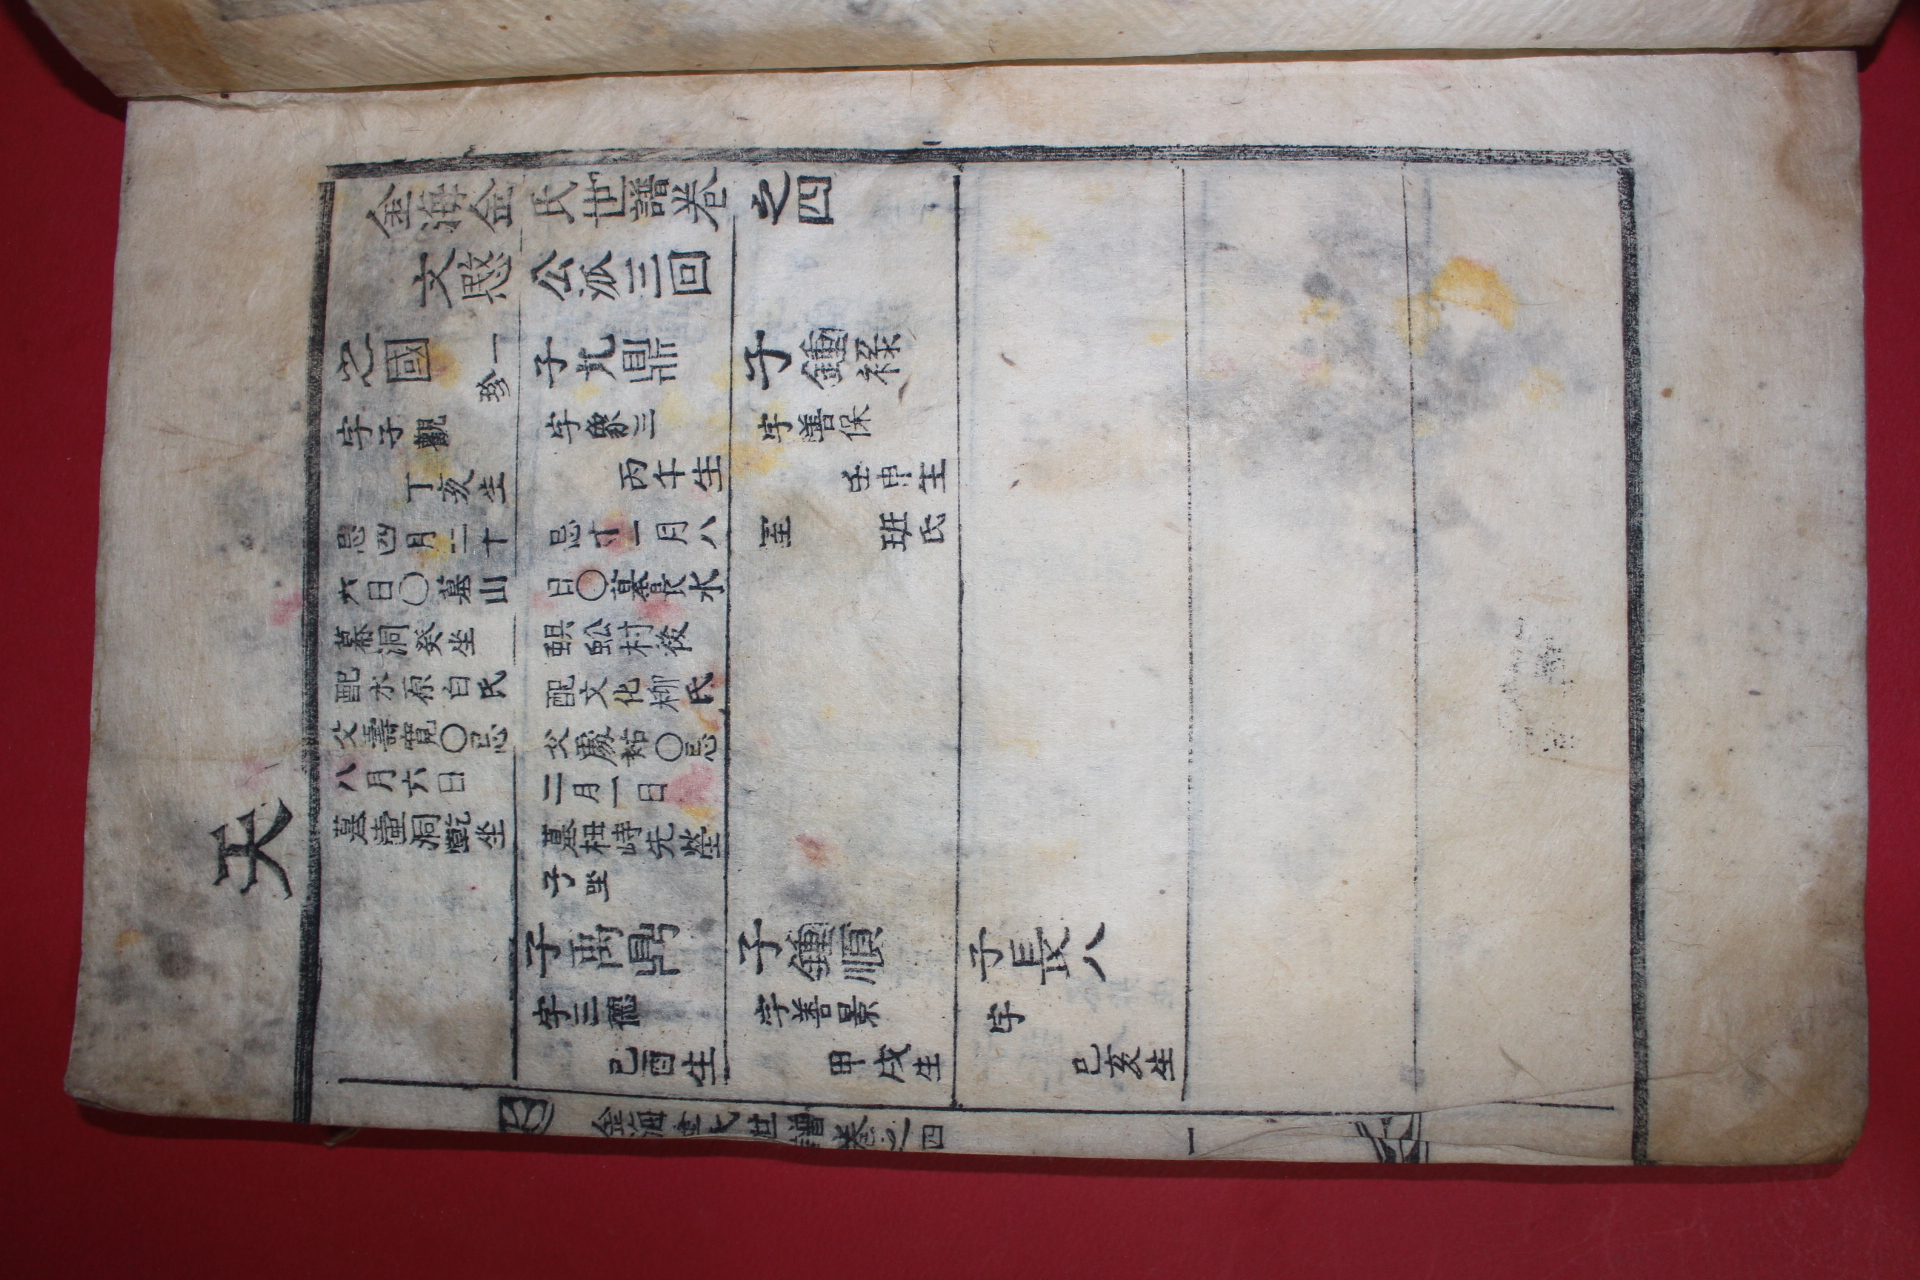 天
金海金氏世譜卷之四
文愍公派三回
之國 一珍
字子觀
丁亥生
忌四月二十
六日○墓山
幕洞癸坐
配水原白氏
父壽寬○忌
八月六日
墓壺洞乾坐
子九鼎
字象三
丙午生
忌十一月八
日○墓長水
蜈蚣村後
配文化柳氏
父○忌
二月一日
墓杻峙先塋
子坐
子禹鼎
字三德
己酉生
子鍾
字善保
壬申生
室 班氏
子鍾順
字善景
甲戌生
子長八
字
己亥生
金海金氏世譜卷之四 一